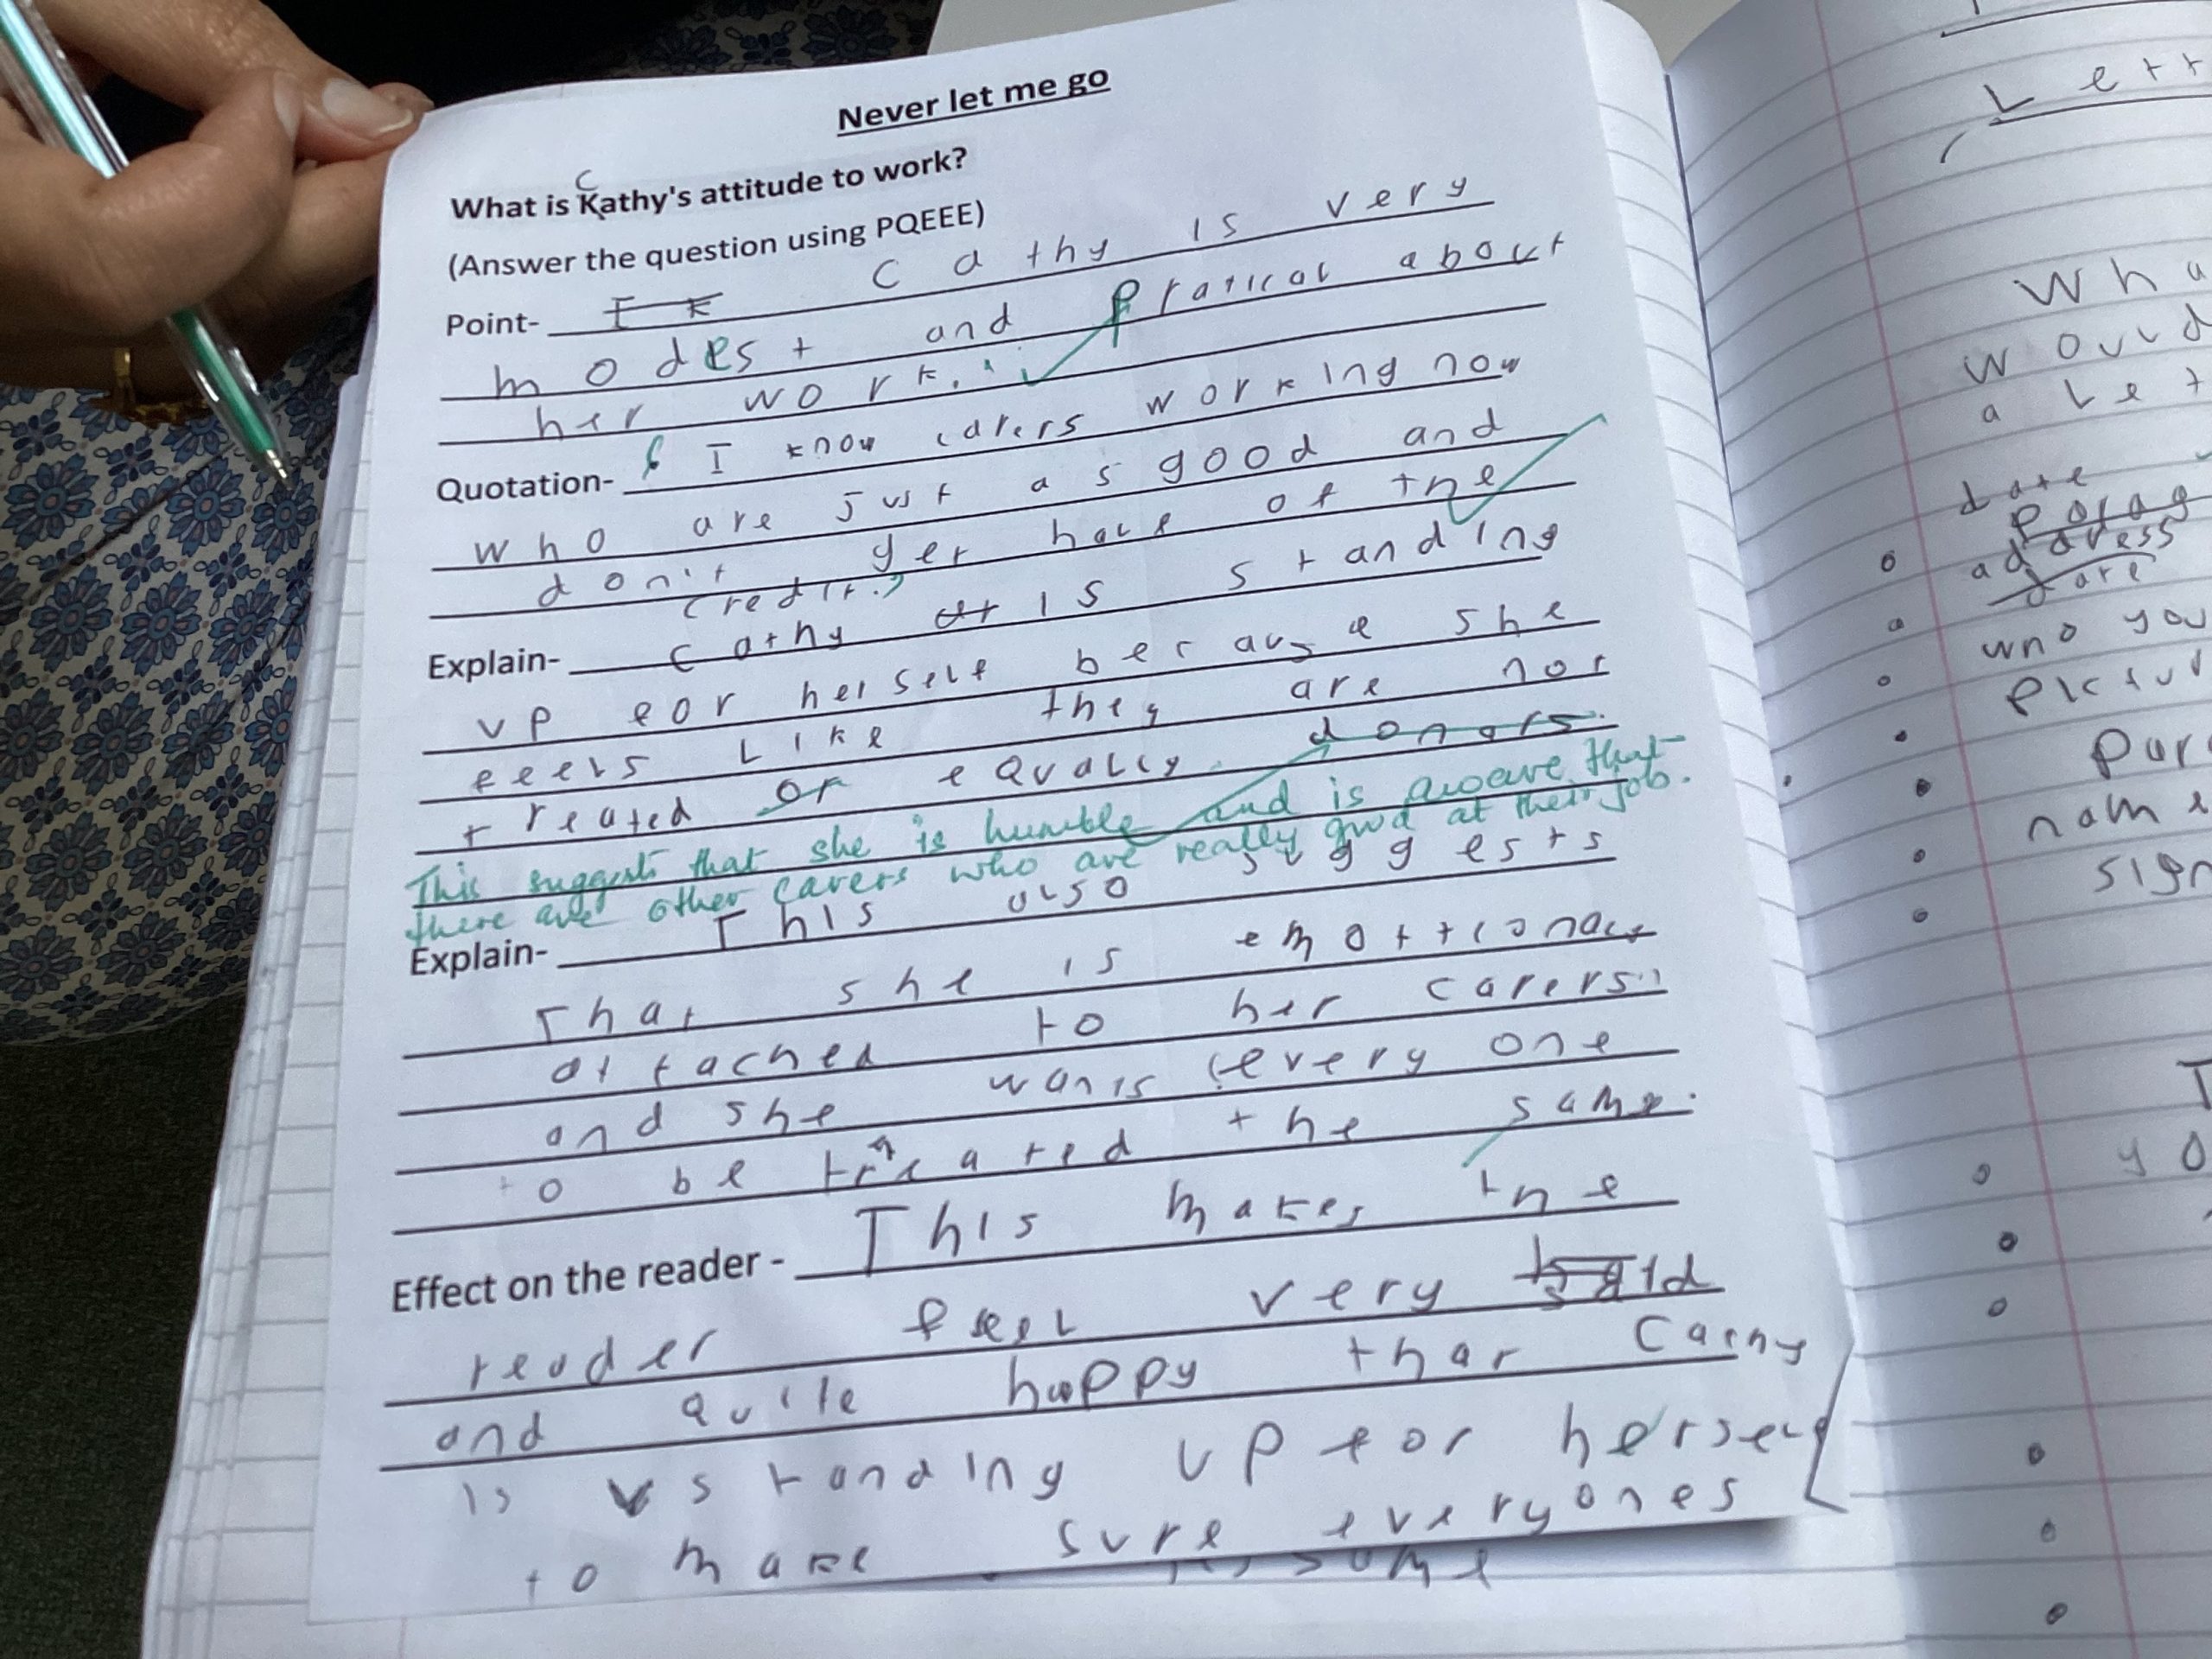 Never let me go
C
What is Kathy's attitude to work?
(Answer the question using PQEEE)
Point- Cathy is very
modest and pratical about
her work.
Quotation- I know carers working now
who are just as good and
don't get have of the
credit.'
Explain- Cathy is standing
up for herself because she
feels Like they are not
treated or equally. donors.
This suggests that she is humble and is aware that
there are other carers who are really good at their job.
Explain- This also suggests
That she is
attached to her carers
and she wants everyone
to be treated the same.
Effect on the reader - This makes the
reader feel very
and quite happy that Cathy
is standing up for herself
to make sure everyones
same
Lett
Wha
would
a Let
date
Parag
adress
date
who you
Pictur
Par
name
sign
T
yo